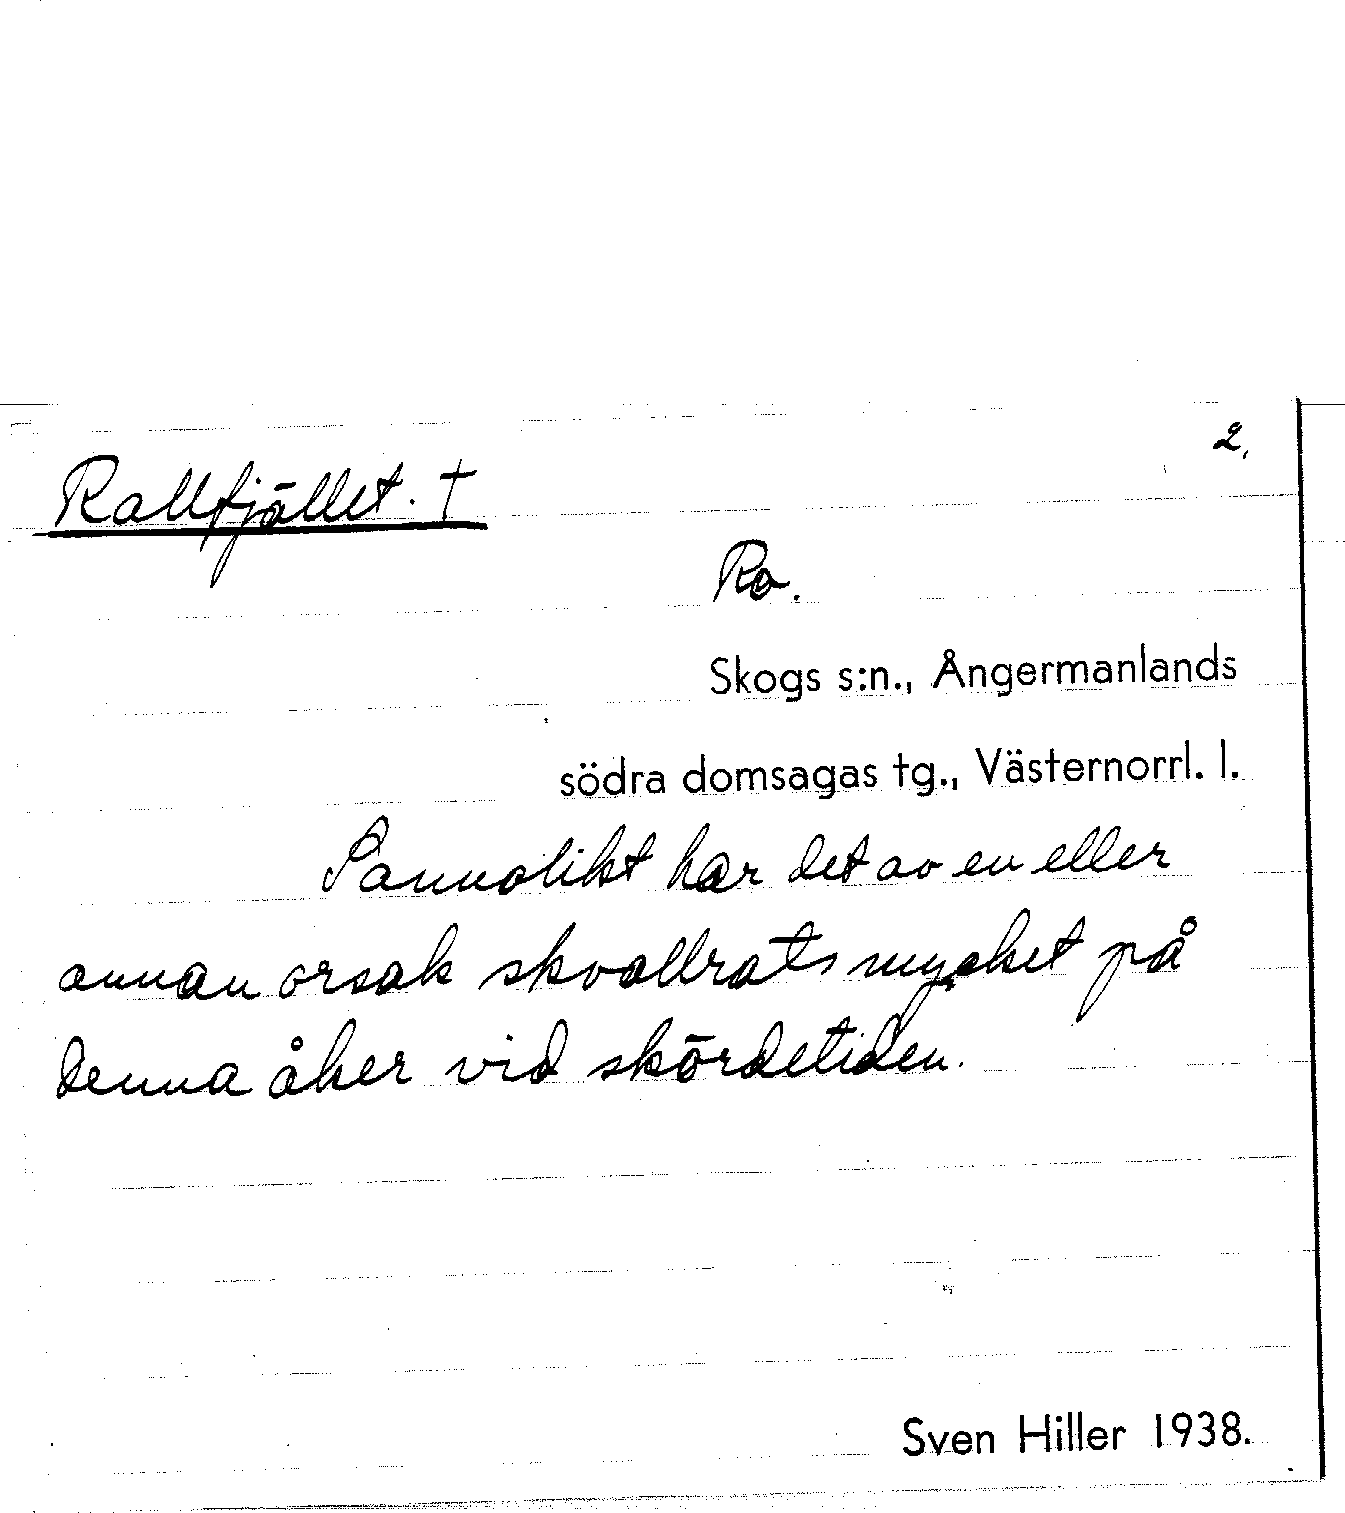 2.
Rallfjället. †
Ro.
Skogs s:n., Ångermanlands
södra domsagas tg., Västernorrl. l.
Sannolikt har det av en eller
annan orsak skvallrats mycket på
denna åker vid skördetiden.
Sven Hiller 1938.